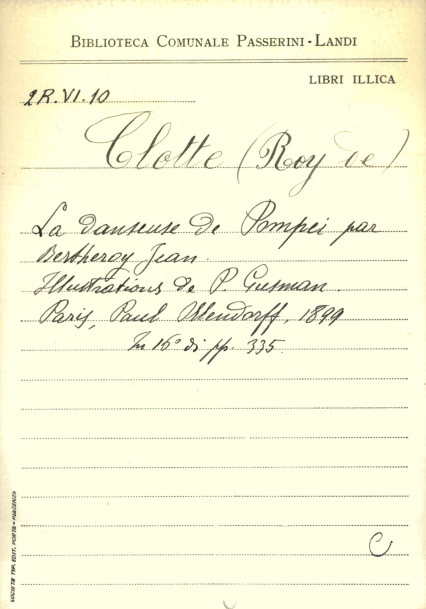 BIBLIOTECA COMUNALE PASSERINI-LANDI
LIBRI ILLICA
2R.VI.10
Clotte (Roy de)
La danseuse de Pompei par
Bertheroy Jean.
Illustrations de P. Gusman.
Paris, Paul Ollendorff, 1899
In 16° di pp. 335
C
SOCIETÀ TIP. EDIT. PORTA - PIACENZA